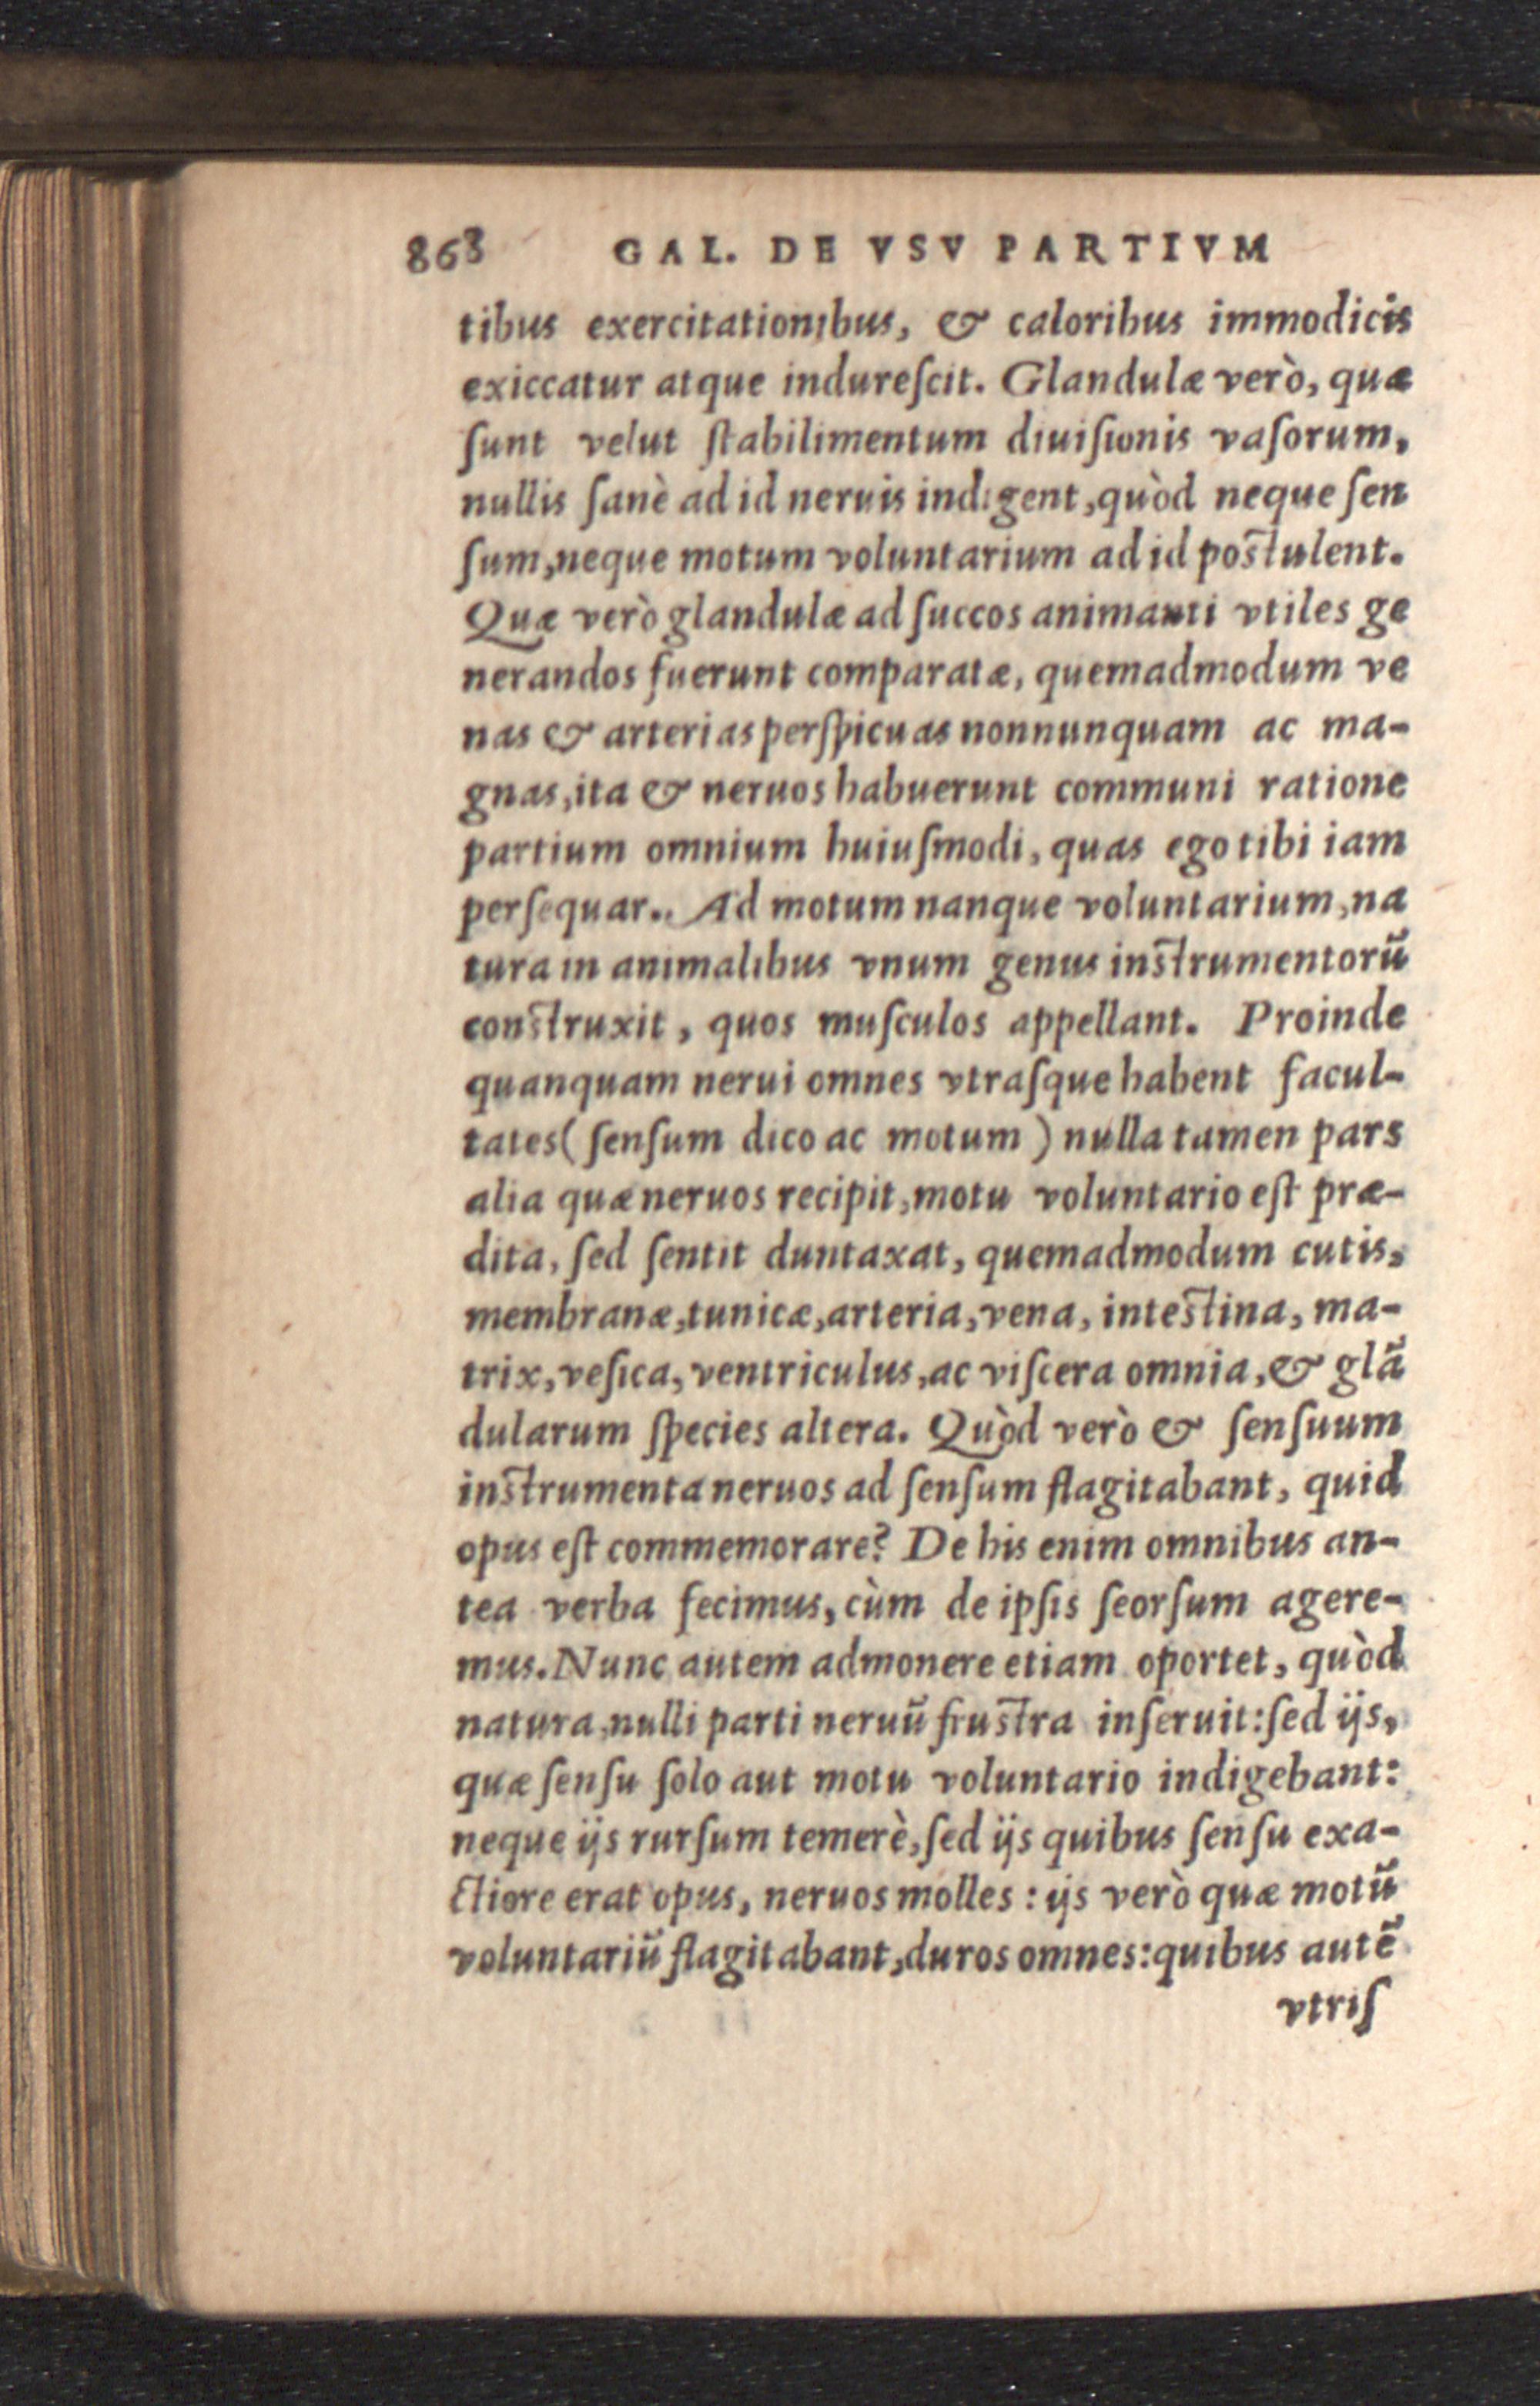 868 GAL. DE VSV PARTIVM
tibus exercitationibus, & caloribus immodicis
exiccatur atque indureſcit. Glandulæ verò, quæ
ſunt velut ſtabilimentum diuiſionis vaſorum,
nullis ſanè ad id neruis indigent, quòd neque ſen
ſum, neque motum voluntarium ad id poſtulent.
Quæ verò glandulæ ad ſuccos animanti vtiles ge
nerandos fuerunt comparatæ, quemadmodum ve
nas & arterias perſpicuas nonnunquam ac ma-
gnas, ita & neruos habuerunt communi ratione
partium omnium huiuſmodi, quas ego tibi iam
perſequar.. Ad motum nanque voluntarium, na
tura in animalibus vnum genus inſtrumentorũ
conſtruxit, quos muſculos appellant. Proinde
quanquam nerui omnes vtraſque habent facul-
tates (ſenſum dico ac motum) nulla tamen pars
alia quæ neruos recipit, motu voluntario eſt præ-
dita, ſed ſentit duntaxat, quemadmodum cutis,
membranæ, tunicæ, arteria, vena, inteſtina, ma-
trix, veſica, ventriculus, ac viſcera omnia, & glã
dularum ſpecies altera. Quòd verò & ſenſuum
inſtrumenta neruos ad ſenſum flagitabant, quid
opus eſt commemorare? De his enim omnibus an-
tea verba fecimus, cùm de ipſis ſeorſum agere-
mus. Nunc autem admonere etiam oportet, quòd
natura, nulli parti neruũ fruſtra inſeruit: ſed ijs,
quæ ſenſu ſolo aut motu voluntario indigebant:
neque ijs rurſum temerè, ſed ijs quibus ſenſu exa-
ctiore erat opus, neruos molles: ijs verò quæ motũ
voluntariũ flagitabant, duros omnes: quibus autẽ
vtriſ